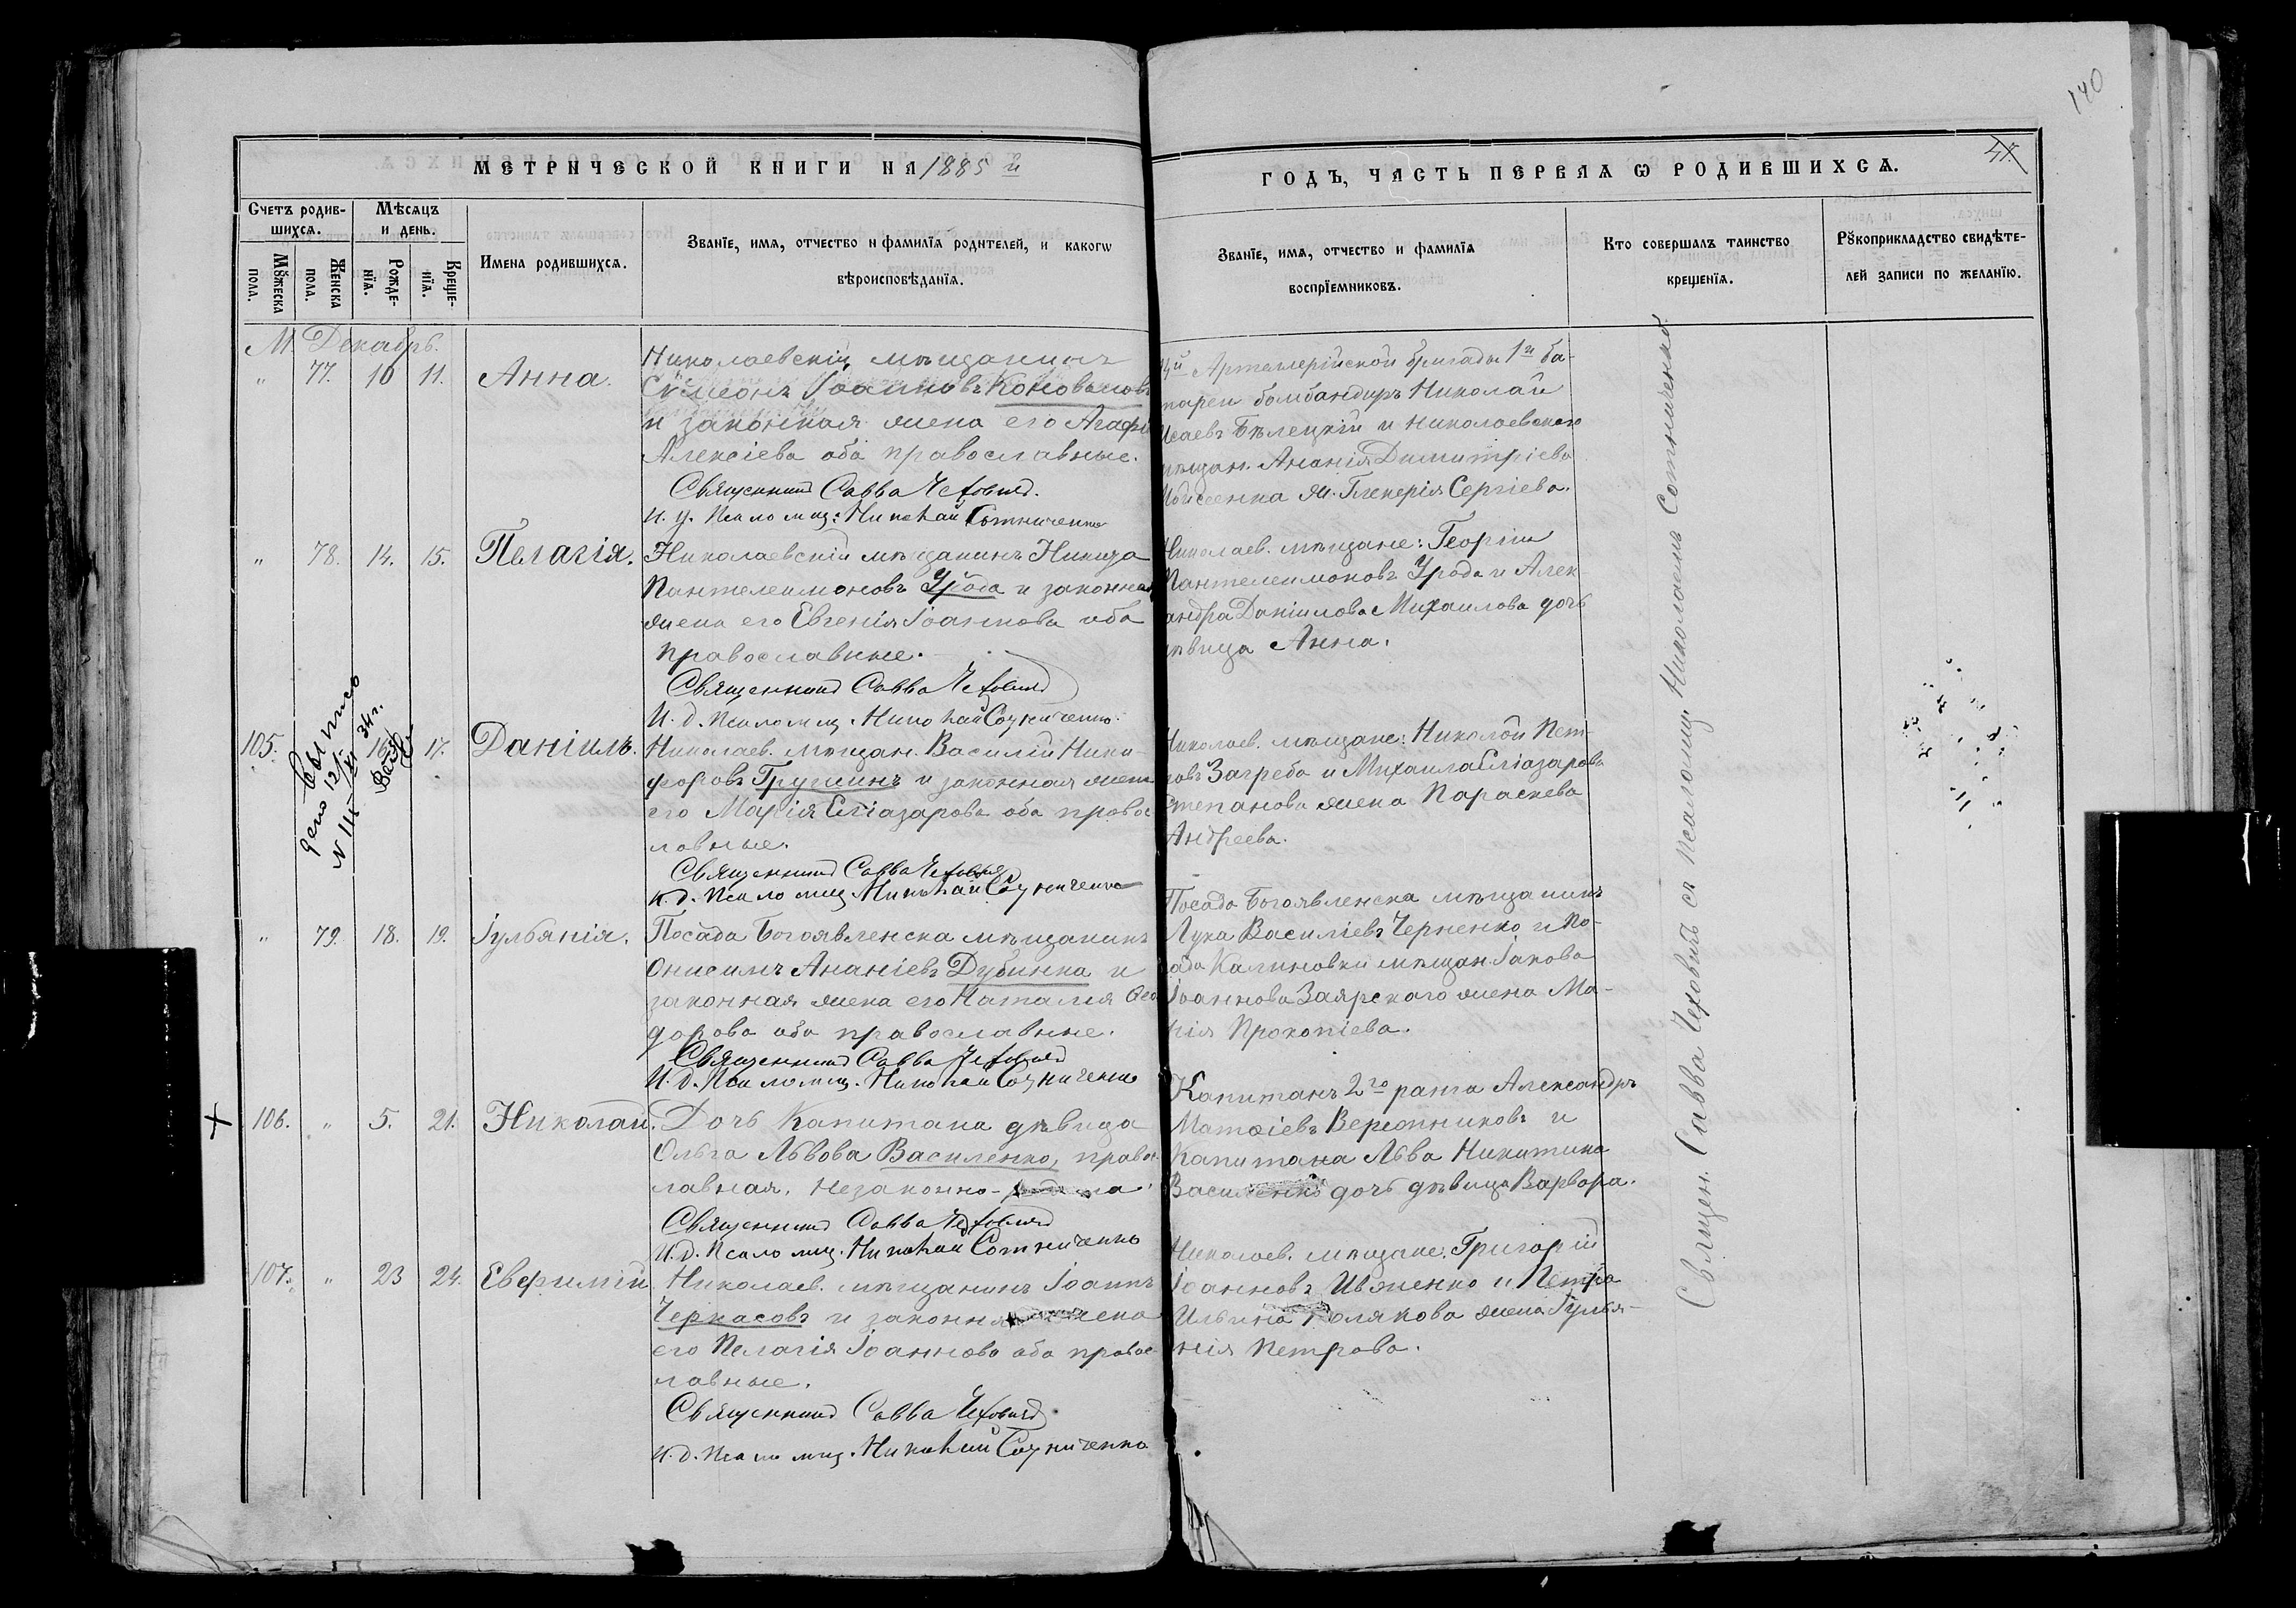 140
МЕТРИЧЕСКОЙ КНИГИ НА 1885 й
ГОДЪ, ЧАСТЬ ПЕРВАЯ Ѡ РОДИВШИХСѦ.
41
Счетъ родив-
шихсѧ.
Мѣсѧцъ
и день.
Мꙋжеска
пола.
Женска
пола.
Рожде-
нїѧ.
Креще-
нїѧ.
Имена родившихсѧ.
Званїе, имѧ, отчество и фамилїѧ родителей, и какогѡ
вѣроисповѣданїѧ.
Званїе, имѧ, отчество и фамилїѧ
воспрїемниковъ.
Кто совершалъ таинство
крещенїѧ.
Рꙋкоприкладство свидѣте-
лей записи по желанїю.
М. Декабрь.
" 77. 10 11. Анна.
Николаевскій мѣщанинъ
Сѵмеонъ Іоанновъ Коноваловъ
и законная жена его Агафія
Алексіева оба православные.
Священникъ Савва Чеховичъ.
И. д. Псаломщ: Николай Сотниченко
Артиллерійской бригады 1й ба-
тареи бомбандиръ Николай
Исаевъ Бѣлецкій и Николаевскаго
мѣщан. Ананія Димитріева
Моисеенка ж. Гликерія Сергіева.
" 78. 14. 15. Пелагія.
Николаевскій мѣщанинъ Никита
Пантелеимоновъ Урода и законная
жена его Евгенія Іоаннова оба
православные.
Священникъ Савва Чеховичъ
И. д. Псаломщ. Николай Сотниченко.
Николаев. мѣщане: Георгій
Пантелеимоновъ Урода и Алек-
андра Даніилова Михаилова дочь
дѣвица Анна.
105. 16 17. Даніилъ.
Выписъ
дело 125
Николаев. мѣщан. Василій Ники-
форовъ Грушинъ и законная жена
его Марія Еліазарова оба право-
лавные.
Священникъ Савва Чеховичъ
И. д. Псаломщ. Николай Сотниченко
Николаев. мѣщане: Николай Пет-
ровъ Загреба и Михаила Еліазарова
Степанова жена Параскева
Андреева.
" 79. 18. 19. Іульянія.
Посада Богоявленска мѣщанинъ
Онисимъ Ананіевъ Дубинка и
законная жена его Наталія Ѳео
дорова оба православные.
Священникъ Савва Чеховичъ
И. д. Псаломщ. Николай Сотниченко
Посада Богоявленска мѣщанинъ
Лука Василіевъ Черненко и По-
сада Калиновки мѣщан. Іакова
Іоаннова Заярскаго жена Ма-
рія Прокопіева.
106. " 5. 21. Николай.
Дочь Капитана дѣвица
Ольга Львова Василенко, право-
лавная. Незаконно-
Священникъ Савва Чеховичъ
И. д. Псаломщ. Николай Сотниченко
Капитанъ 2го ранга Александръ
Матѳіевъ и
Капитана Льва Никитина
Василенко дочь дѣвица Варвара.
107. " 23 24. Евфимій
Николаев. мѣщанинъ Іоаннъ
Черкасовъ и законная жена
его Пелагія Іоаннова оба право-
лавные.
Священникъ Савва Чеховичъ
И. д. Псаломщ. Николай Сотниченко
Николаев. мѣщане: Григорій
Іоанновъ Ивженко и Петра
Ильина Полякова жена Іулья-
нія Петрова.
Священ. Савва Чеховичъ съ псаломщ. Николаемъ Сотниченко